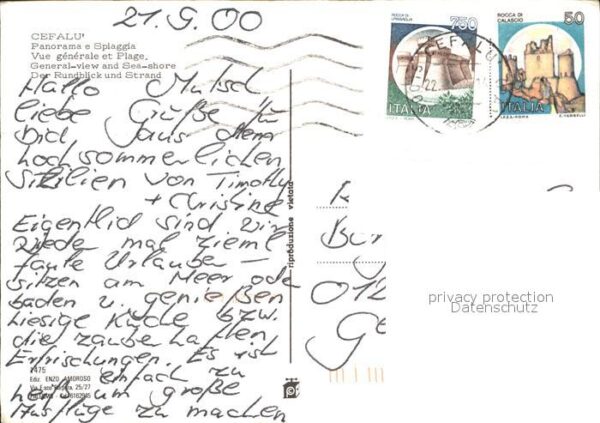 21.9.00
CEFALU'
Panorama e Spiaggia
Vue générale et Plage.
General-view and Sea-shore
Der Rundblick und Strand
Hallo Mutsch
liebe Grüße für
Dich aus dem
hochsommerlichen
Sizilien von Timothy
+ Christine
Eigentlich sind wir
wieder mal zieml.
faule Urlauber –
sitzen am Meer oder
baden u. genießen
hiesige Küche bzw.
die zauberhaften
Erfrischungen. Es ist
einfach zu
heiß um große
Ausflüge zu machen
7475
Ediz. ENZO AMBROSO
25/27
riproduzione vietata
ROCCA DI
URBISAGLIA
750
ITALIA
ROCCA DI
CALASCIO
50
ITALIA
I.P.Z.S. ROMA
CEFALU
22.
012
privacy protection
Datenschutz